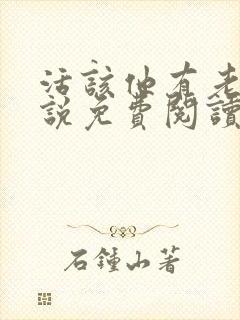 活該他有老
說免費閱讀
石鍾山著